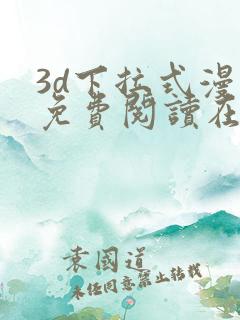 3d下拉式漫
免費閱讀在
袁國道
未经同意禁止转载